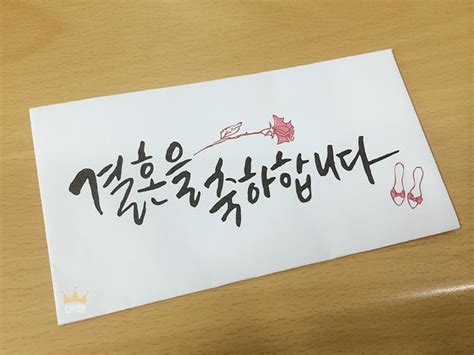 결혼을 축하합니다